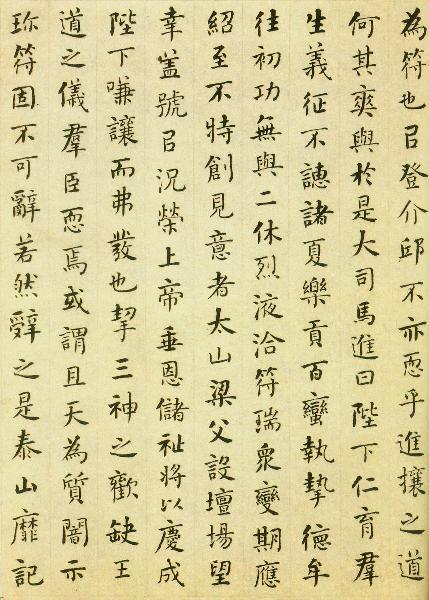 為符也㠯登介邱不亦恧乎進攘之道
何其爽與於是大司馬進曰陛下仁育羣
生義征不譓諸夏樂貢百蠻執摯德牟
往初功無與二休烈液洽符瑞衆變期應
紹至不特創見意者太山梁父設壇場望
幸盖號㠯況榮上帝垂恩儲祉將以慶成
陛下嗛讓而弗發也挈三神之歡缺王
道之儀羣臣恧焉或謂且天為質闇示
珎符固不可辭若然辤之是泰山靡記